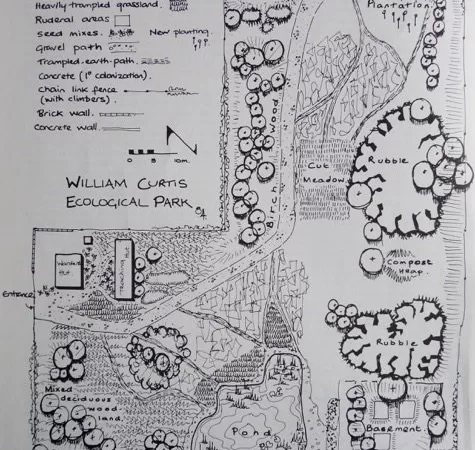 Heavily trampled grassland.
Ruderal areas
Seed mixes. New planting.
Gravel path
Trampled-earth-path.
Concrete (1° colonization).
Chain link fence
(with climbers).
Brick wall.
Concrete wall.
0 5 10m.
N
WILLIAM CURTIS
ECOLOGICAL PARK
Plantation.
Birch Wood
Cut
Meadow
Rubble
Compost
Heap.
Entrance
Wardens
Hut
Hut
Rubble
Mixed
deciduous
wood
land.
Pond
Basement.